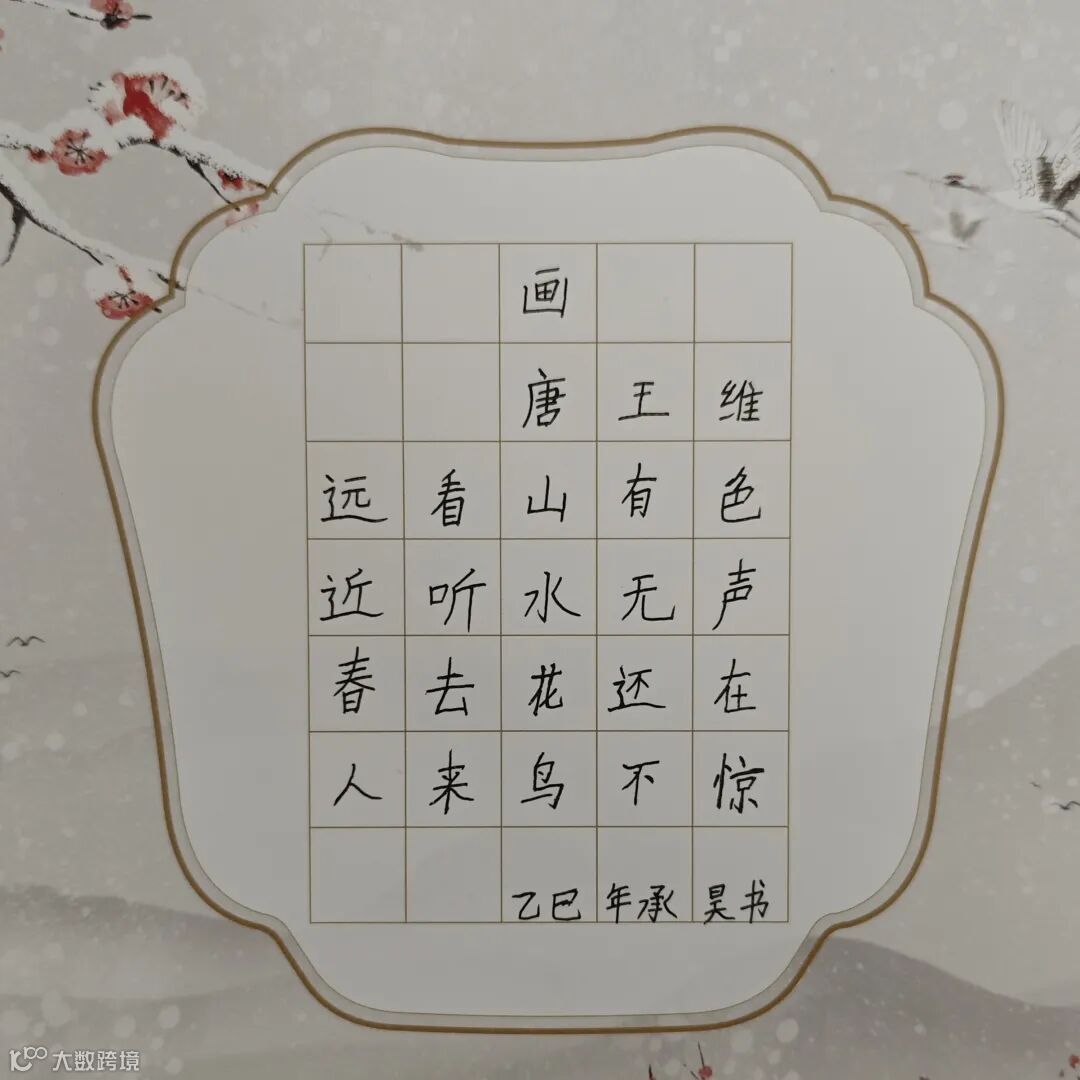 画
唐王维
远看山有色
近听水无声
春去花还在
人来鸟不惊
乙巳年承昊书
大数跨境